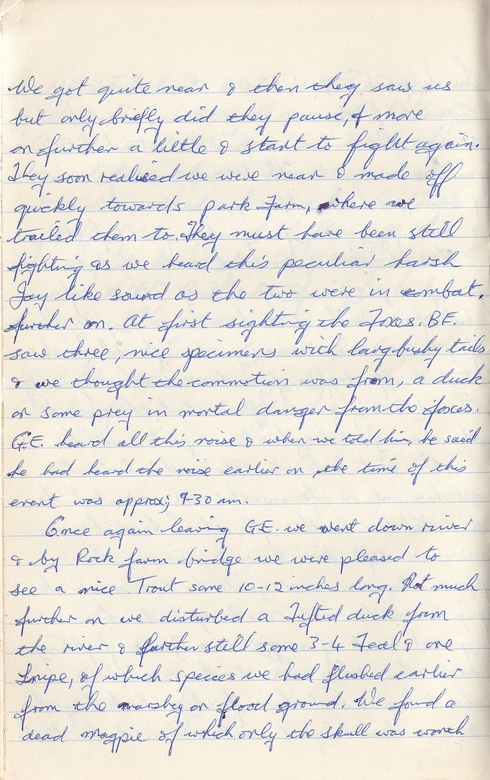 We got quite near & then they saw us
but only briefly did they pause, & more
on further a little & start to fight again.
They soon realised we were near & made off
quickly towards park Farm, where we
trailed them to. They must have been still
fighting as we heard this peculiar harsh
Jay like sound as the two were in combat,
further on. At first sighting the Foxes. B.E.
saw three, nice specimens with large bushy tails
& we thought the commotion was from, a duck
or some prey in mortal danger from the foxes.
G.E. heard all this noise & when we told him, he said
he had heard the noise earlier on, the time of this
event was approx; 9-30 am.
Once again leaving G.E. we went down river
& by Rock farm bridge we were pleased to
see a nice Trout some 10-12 inches long. Not much
further on we disturbed a Tufted duck from
the river & further still some 3-4 Teal & one
Snipe, of which species we had flushed earlier
from the marshy or flood ground. We found a
dead magpie of which only the skull was worth